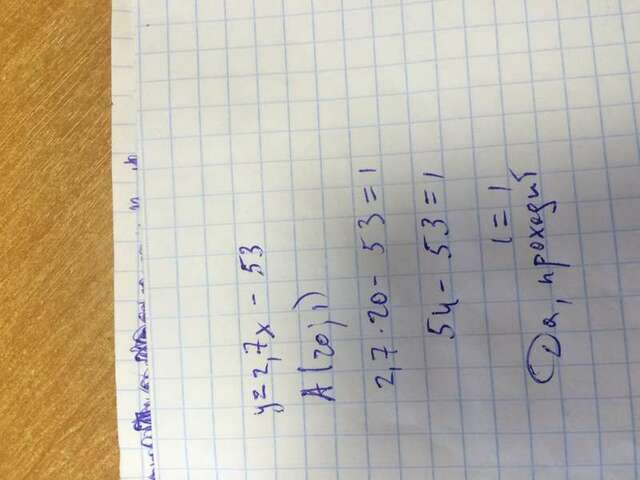 y=2,7x - 53
A(20;1)
2,7·20 - 53 = 1
54 - 53 = 1
1 = 1
Да, проходит